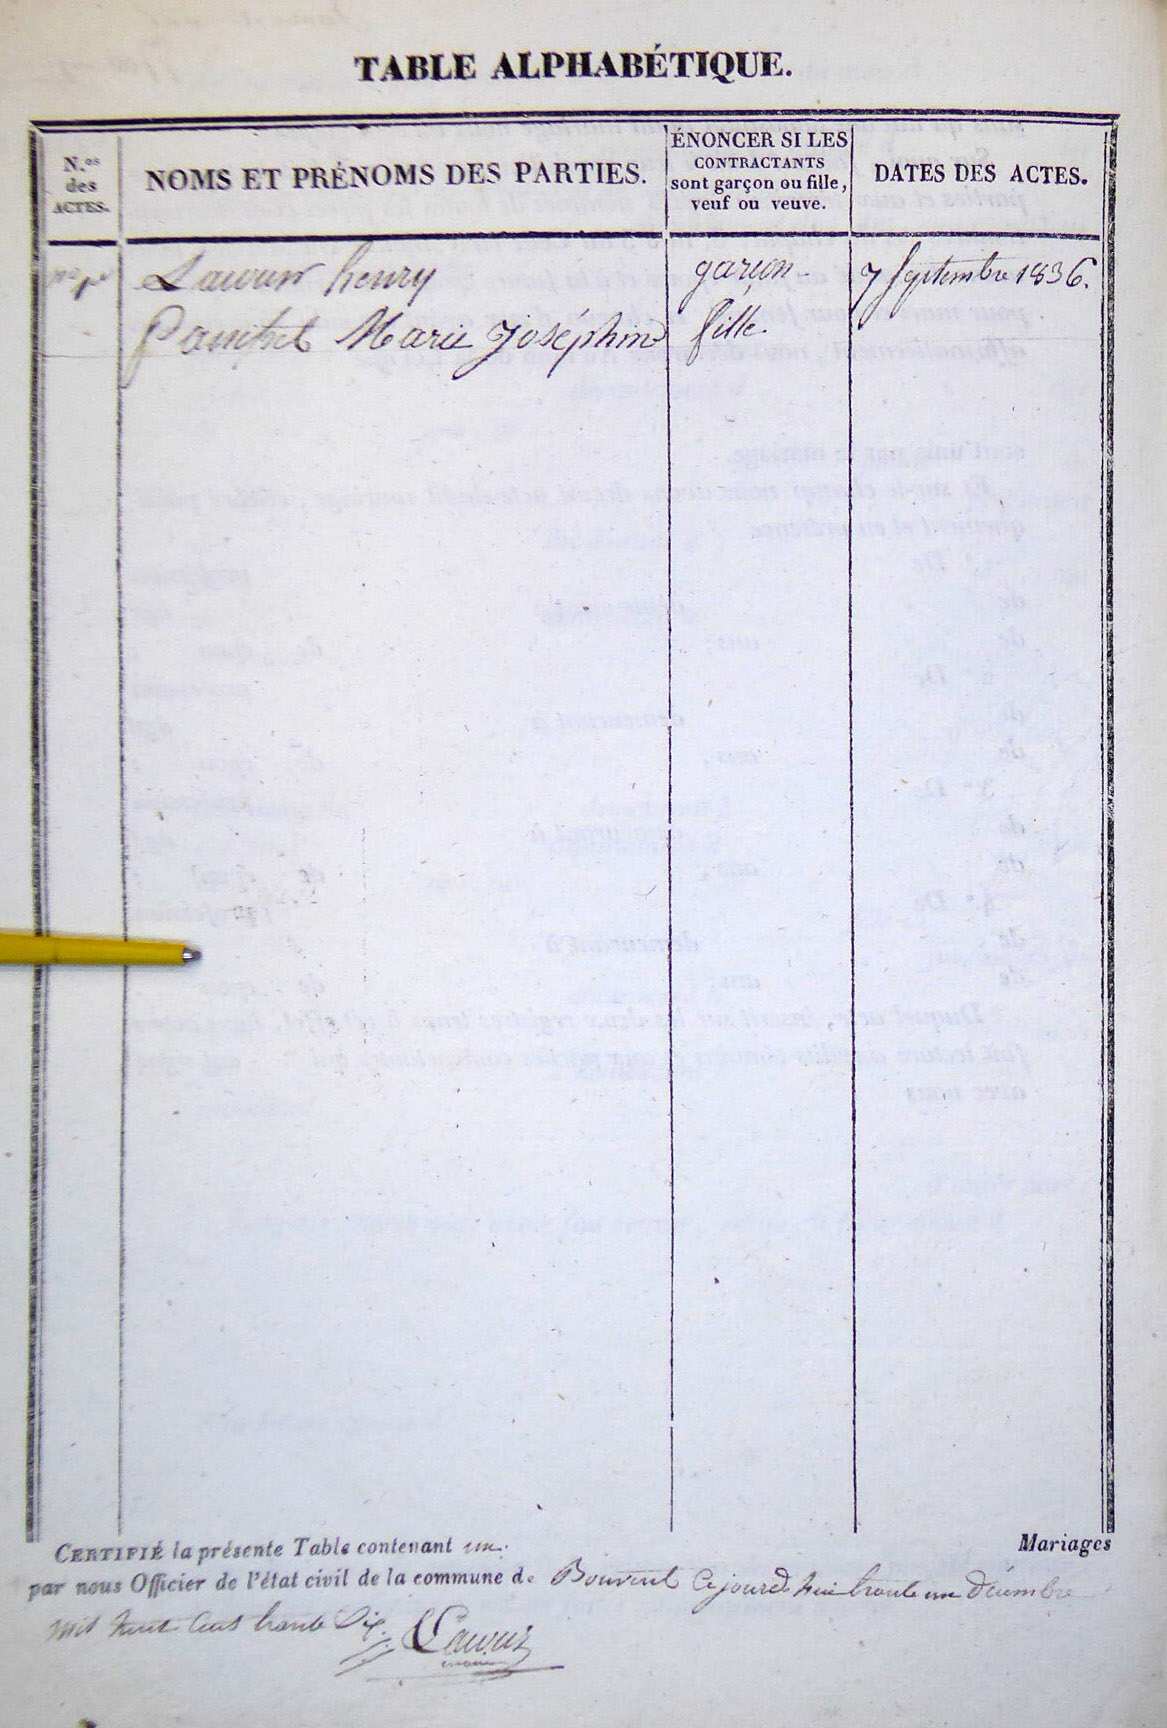 TABLE ALPHABÉTIQUE.
N.os des ACTES.
NOMS ET PRÉNOMS DES PARTIES.
ÉNONCER SI LES CONTRACTANTS sont garçon ou fille, veuf ou veuve.
DATES DES ACTES.
henry garçon 7 Septembre 1836.
Marie Joséphine fille.
CERTIFIÉ la présente Table contenant un. Mariages
par nous Officier de l'état civil de la commune de Bouvent Ce jourd hui trente un Décembre
mil huit Cent trente Six.